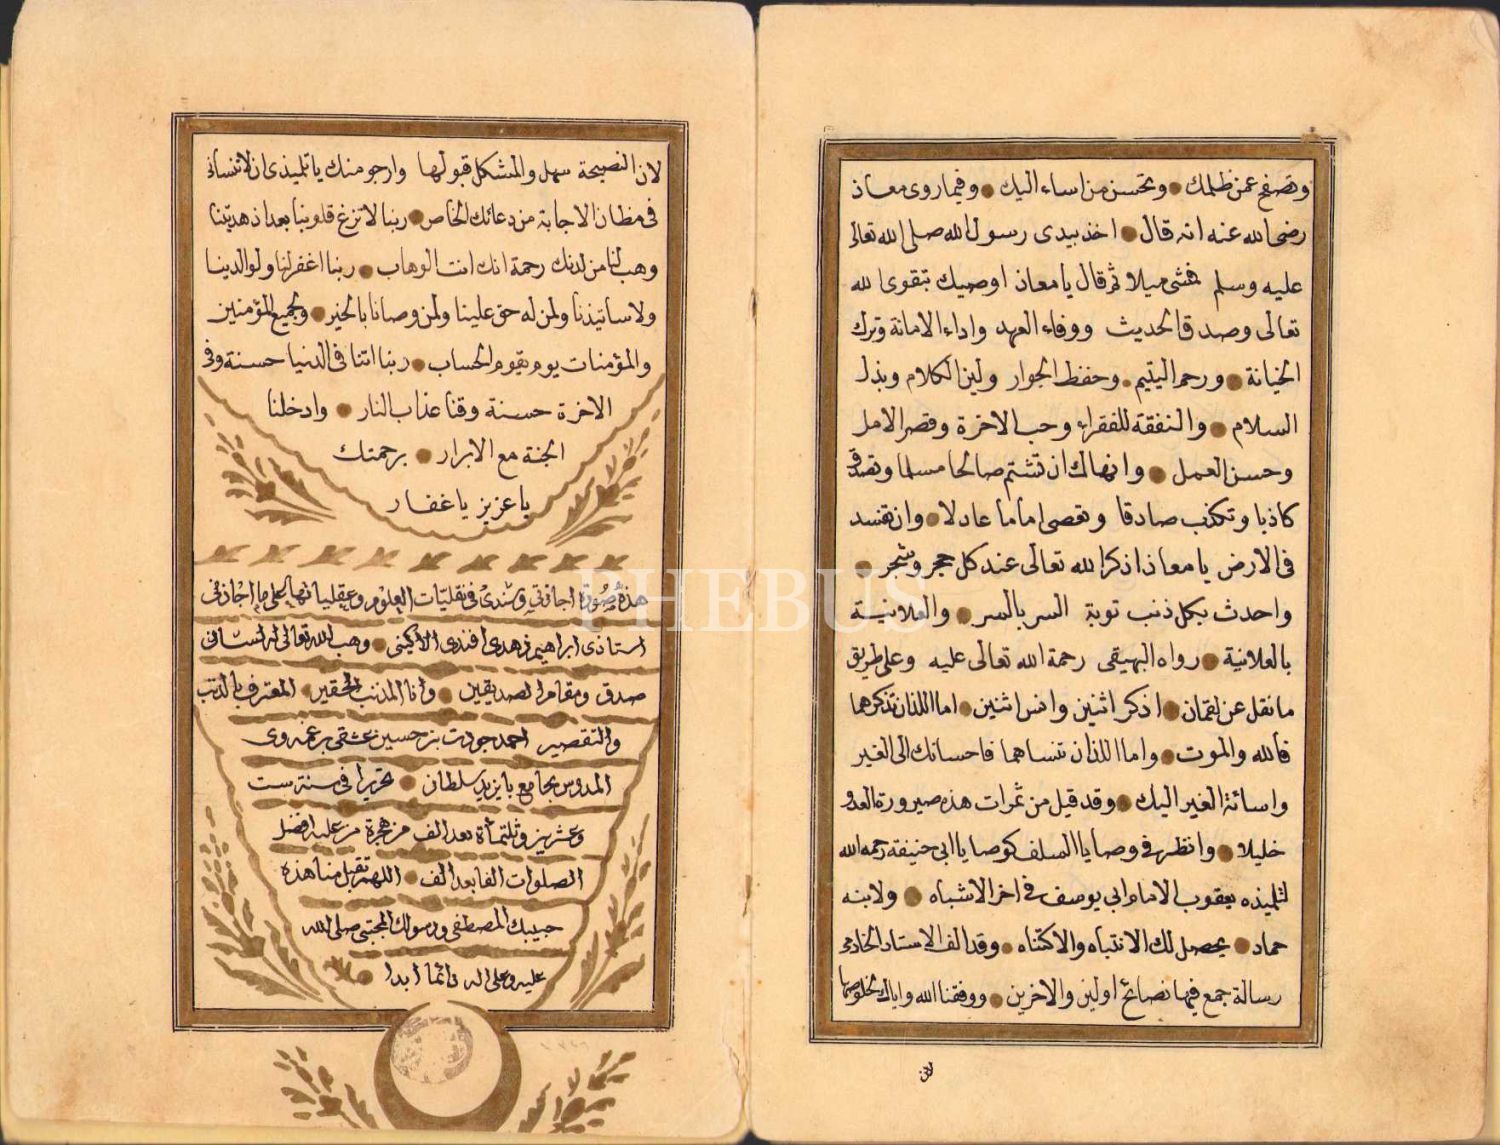 وتصفح عمن ظلمك وتحسن من اساء اليك وفيما روى معاذ
رضى الله عنه انه قال اخذ بيدى رسول الله صلى الله تعالى
عليه وسلم فمشى ميلا ثم قال يا معاذ اوصيك بتقوى الله
تعالى وصدق الحديث ووفاء العهد واداء الامانة وترك
الخيانة ورحم اليتيم وحفظ الجوار ولين الكلام وبذل
السلام والنفقة للفقراء وحب الاخرة وقصر الامل
وحسن العمل وانهاك ان تشتم صالحا مسلما وتصدق
كاذبا وتكذب صادقا وتعصى اماما عادلا وان تفسد
فى الارض يا معاذ اذكر الله تعالى عند كل حجر وشجر
واحدث بكل ذنب توبة السر بالسر والعلانية
بالعلانية رواه البيهقى رحمة الله تعالى عليه وعلى طريق
ما نقل عن لقمان اذكر اثنين وانس اثنين اما اللذان تذكرهما
فالله والموت واما اللذان تنساهما فاحسانك الى الغير
واسائة الغير اليك وقد قيل من ثمرات هذه صيرورة العدو
خليلا وانظر فى وصايا السلف كوصايا ابى حنيفة رحمه الله
لتلميذه يعقوب الامام ابى يوسف فى اخر الاشباه ولابنه
حماد يحصل لك الانتباه والاكتناه وقد الف الاستاد الخادمى
رسالة جمع فيها نصائح اولين والاخرين ووفقنا الله واياك
لان
لان النصيحة سهل والمشكل قبولها وارجو منك يا تلميذى ان لا تنسانى
فى مظان الاجابة من دعائك الخاص ربنا لا تزغ قلوبنا بعد اذ هديتنا
وهب لنا من لدنك رحمة انك انت الوهاب ربنا اغفر لنا ولوالدينا
ولاساتيذنا ولمن له حق علينا ولمن وصانا بالخير ولجميع المؤمنين
والمؤمنات يوم يقوم الحساب ربنا اتنا فى الدنيا حسنة وفى
الاخرة حسنة وقنا عذاب النار وادخلنا
الجنة مع الابرار برحمتك
يا عزيز يا غفار
هذه صورة اجازتى وسندى فى نقليات العلوم وعقلياتها على ما اجازنى
استاذى ابراهيم فهدى افندى الاكينى وهب الله تعالى له لسانى
صدق ومقام الصديقين وانا المذنب الحقير المعترف بالذنب
والتقصير احمد جودت بن حسين عشقى
المدرس بجامع بايزيد سلطان تحريرا فى سنة ست
وعشرين وثلثمأة بعد الف من هجرة من عليه افضل
الصلوات الفا بعد الف اللهم تقبل منا هذه
حبيبك المصطفى ورسولك المجتبى صلى الله
عليه وعلى اله دائما ابدا
PHEBUS